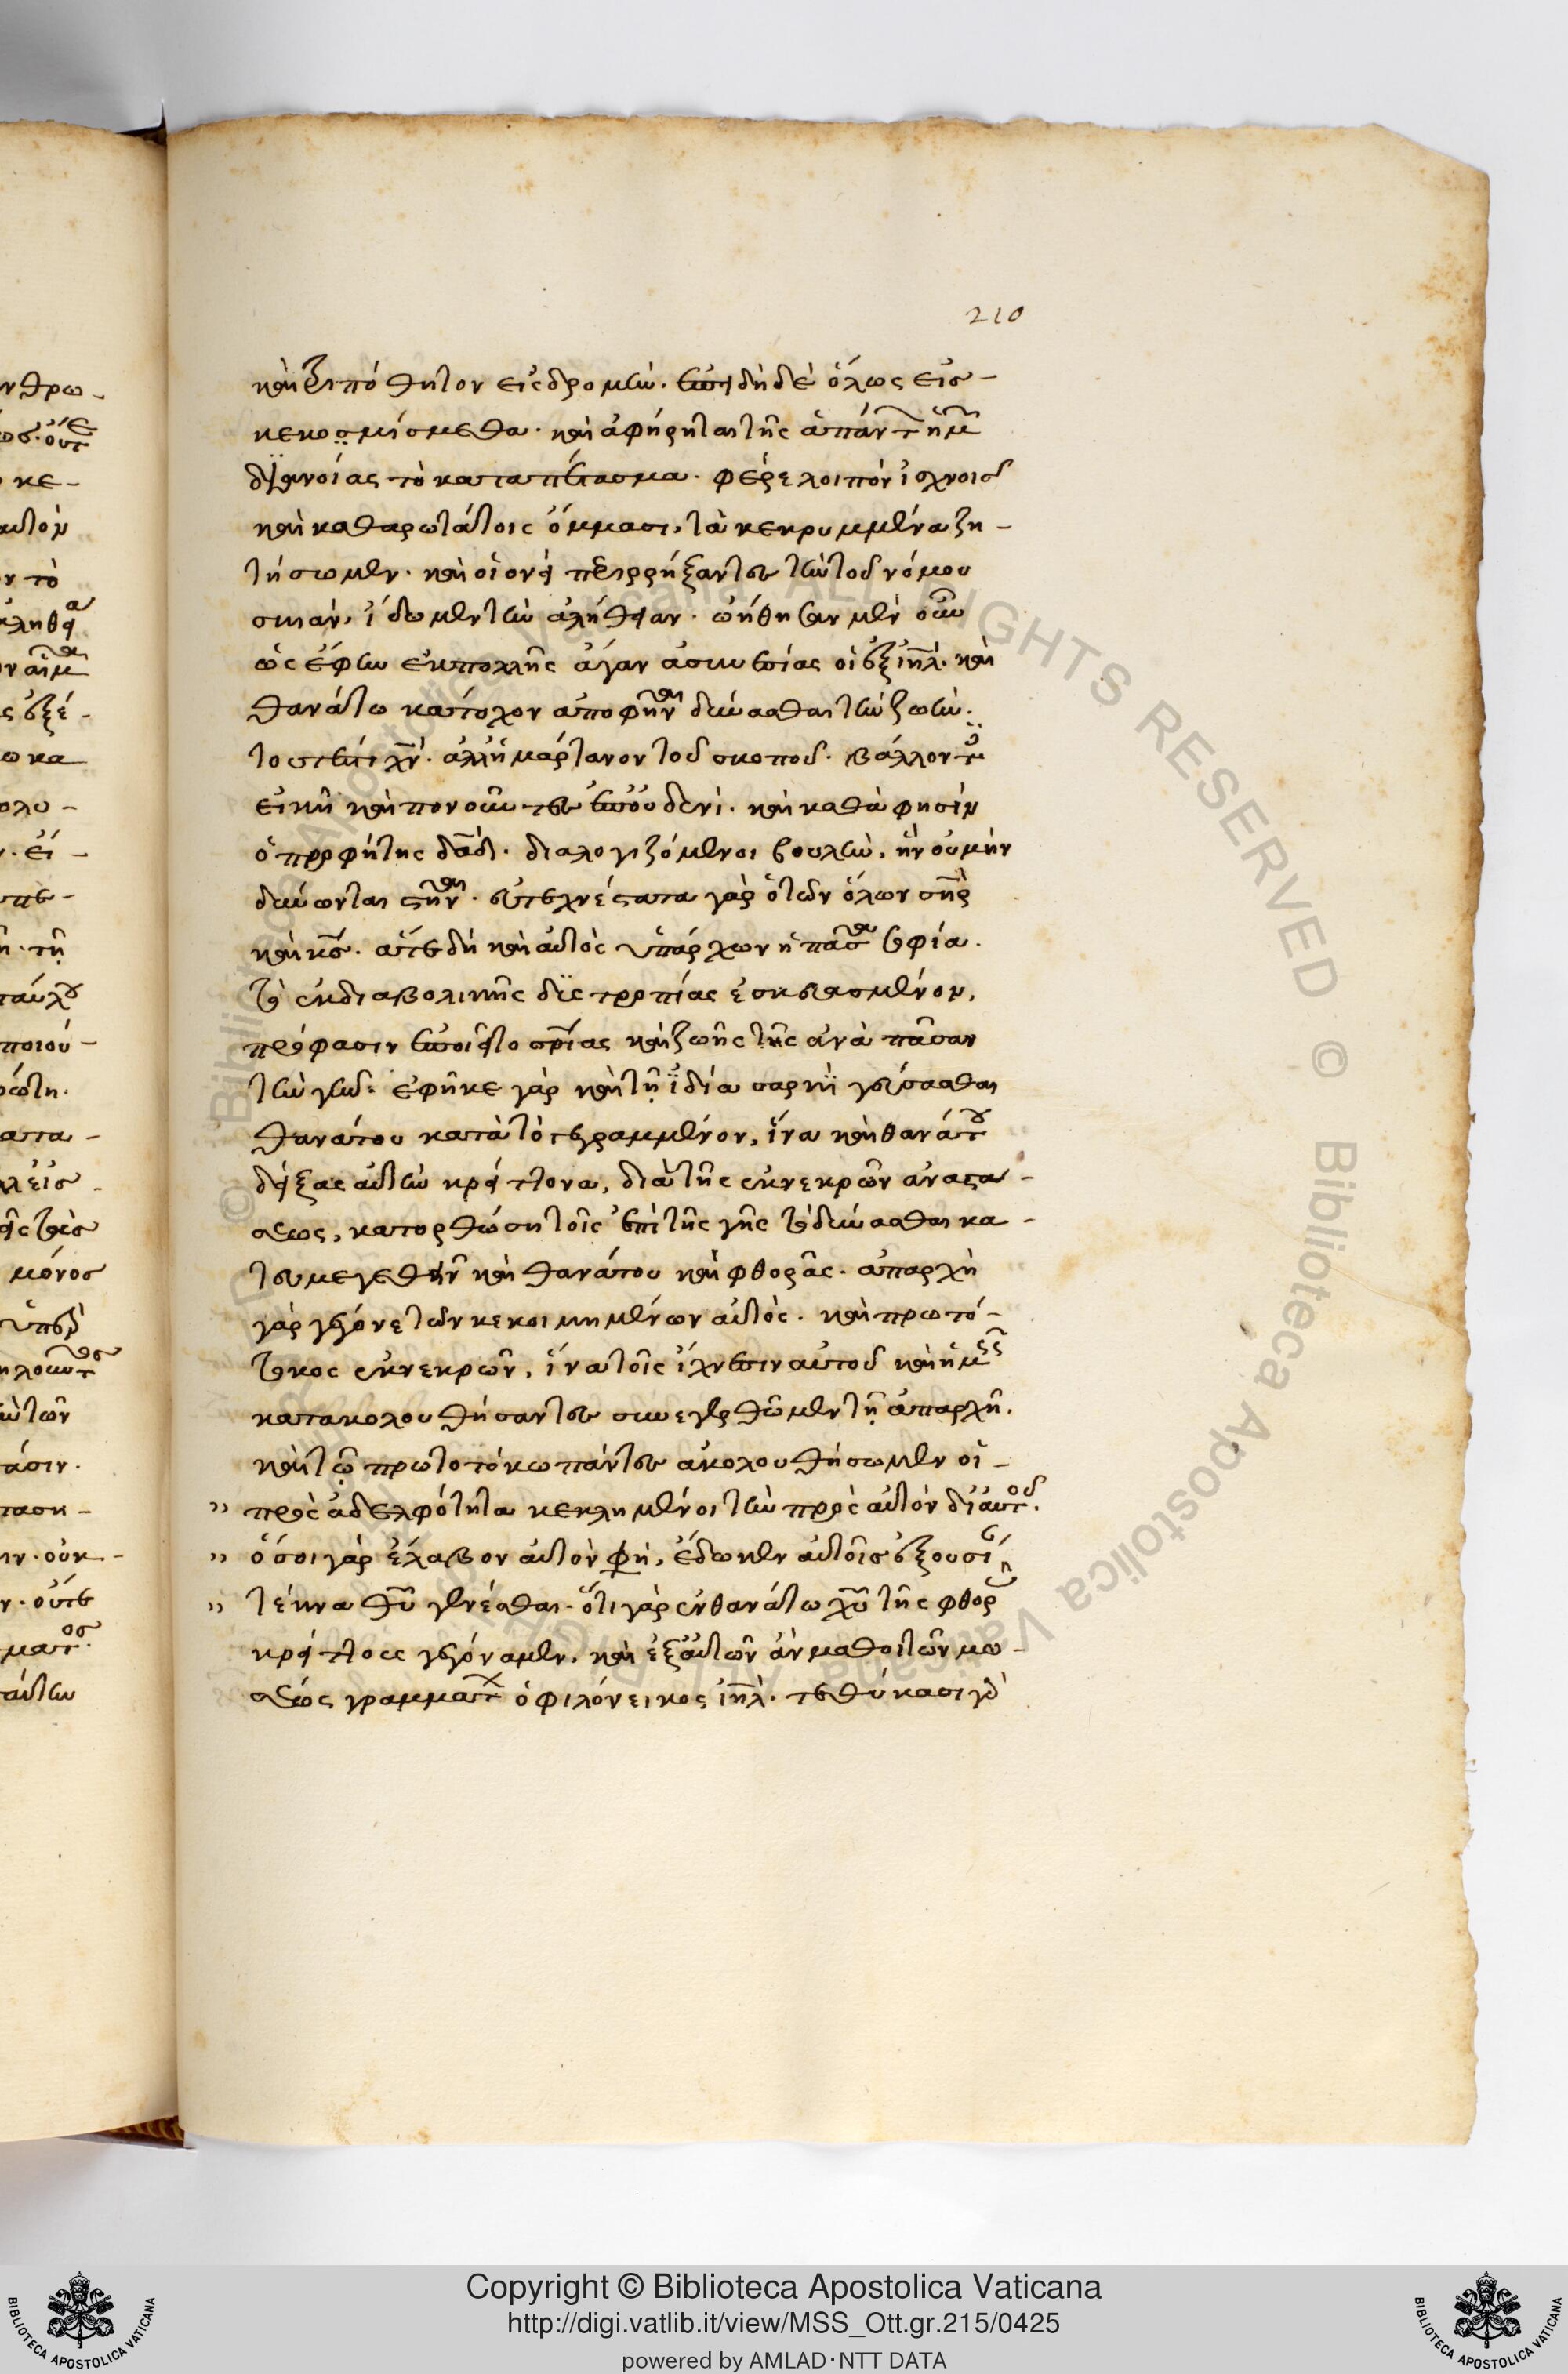 210
καὶ τριπόθητον εἰσδρομὴν. ἐπειδὴ δὲ ὅλως εἰσ-
κεκομίσμεθα. καὶ ἀφήρηται τῆς ἁπάντ ἡμ
διανοίας τὸ καταπέτασμα. φέρε λοιπὸν ἰσχνοῖς
καὶ καθαρωτάτοις ὄμμασι, τὰ κεκρυμμένα ζη-
τήσωμεν. καὶ οἱονεὶ περιρρήξαντες τὴν τοῦ νόμου
σκιὰν, ἴδωμεν τὴν ἀλήθειαν. ὠήθησαν μὲν οὖν
ὡς ἔφην ἐκ πολλῆς ἄγαν ἀσυνεσίας οἱ ἐξ ἰηλ. καὶ
θανάτω κάτοχον ἀποφῆναι δύνασθαι τὴν ζωὴν.
τουτέστι χν. ἀλλ' ἡμάρτανον τοῦ σκοποῦ. βάλλοντ
εἰκῆ καὶ πονοῦντες ἐπ' οὐδενί. καὶ καθά φησὶν
ὁ προφήτης δαδ. διαλογιζόμενοι βουλὴν, ἣν οὐ μὴν
δύνωνται στῆναι. εὐτεχνέστατα γὰρ ὁ τῶν ὅλων σηρ
καὶ κς. ἅτε δὴ καὶ αὐτὸς ὑπάρχων ἡ πᾶσα σοφία.
τὸ ἐκ διαβολικῆς δυστροπίας ἐσκευασμένον,
πρόφασιν ἐποιεῖτο σρίας καὶ ζωῆς τῆς ἀνὰ πᾶσαν
τὴν γῆν. ἐφῆκε γὰρ καὶ τῇ ἰδία σαρκὶ γεύσασθαι
θανάτου κατὰ τὸ γεγραμμένον, ἵνα καὶ θανάτου
δείξας αὐτὴν κρείττονα, διὰ τῆς ἐκ νεκρῶν ἀναστά-
σεως, κατορθώση τοῖς ἐπὶ τῆς γῆς τὸ δύνασθαι κα-
τευμεγεθεῖν καὶ θανάτου καὶ φθορᾶς. ἀπαρχὴ
γὰρ γέγονε τῶν κεκοιμημένων αὐτός. καὶ πρωτό-
τοκος ἐκ νεκρῶν, ἵνα τοῖς ἴχνεσιν αὐτοῦ καὶ ἡμεῖς
κατακολουθήσαντες συνεγερθῶμεν τῇ ἀπαρχῆ.
καὶ τῷ πρωτοτόκω πάντες ἀκολουθήσωμεν οἱ-
" πρὸς ἀδελφότητα κεκλημένοι τὴν πρὸς αὐτὸν δι' αὐτοῦ.
" ὅσοι γὰρ ἔλαβον αὐτὸν φη, ἔδωκεν αὐτοῖς ἐξουσί
" τέκνα θυ γενέσθαι. ὅτι γὰρ ἐν θανάτω χυ τῆς φθορ
κρείττους γεγόναμεν, καὶ ἐξ αὐτῶν ἂν μάθοι τῶν μω-
σέως γραμμάτ ὁ φιλόνεικος ἰηλ. τεθύκασι γὰρ
Copyright © Biblioteca Apostolica Vaticana
http://digi.vatlib.it/view/MSS_Ott.gr.215/0425
powered by AMLAD·NTT DATA